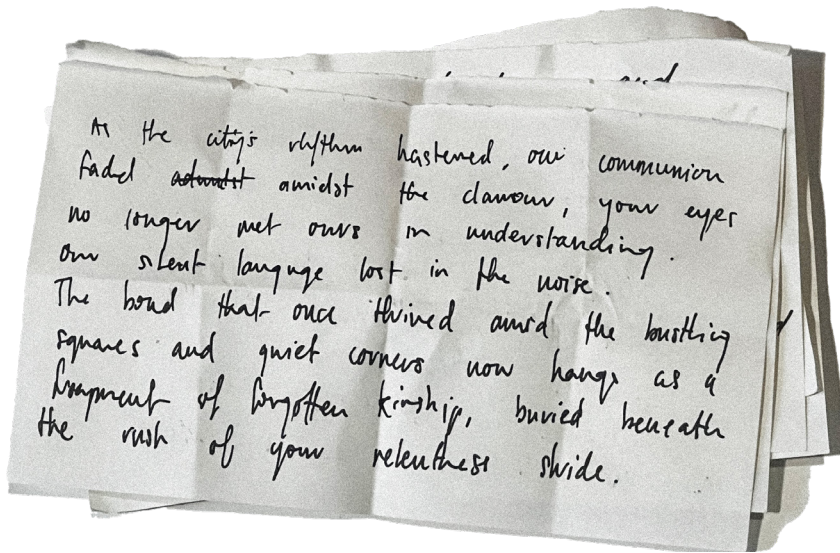 and
As the city's rhythm hastened, our communion
faded amidst the clamour, your eyes
no longer met ours in understanding.
Our silent language lost in the noise.
The bond that once thrived amid the bustling
squares and quiet corners now hangs as a
fragment of forgotten kinship, buried beneath
the rush of your relentless stride.